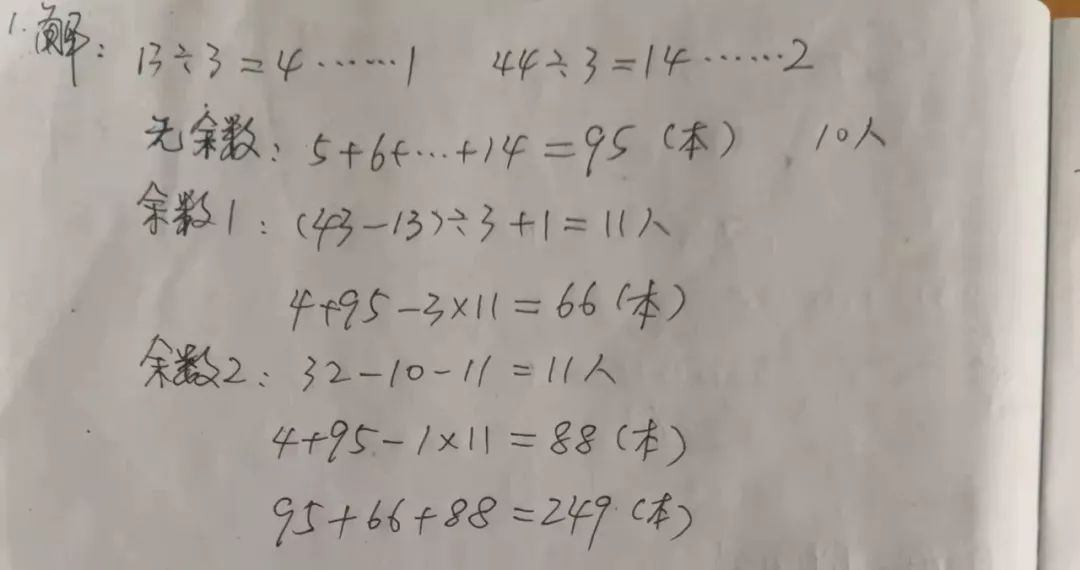 1. 解: 13÷3=4……1 44÷3=14……2
无余数: 5+6+…+14=95 (本) 10人
余数1: (43-13)÷3+1=11人
4+95-3×11=66 (本)
余数2: 32-10-11=11人
4+95-1×11=88 (本)
95+66+88=249 (本)